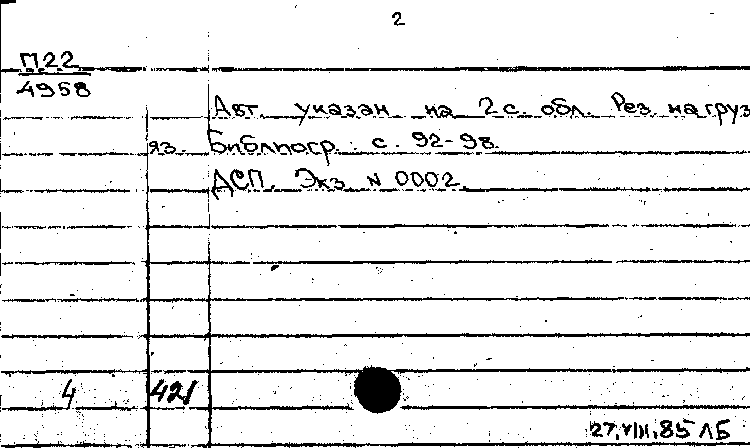 2
П22
4958
Авт. указан на 2 с. обл. Рез. на груз.
яз. Библиогр.: с. 92-98.
ДСП. Экз. N 0002.
4 421
27.VIII.85 ЛБ